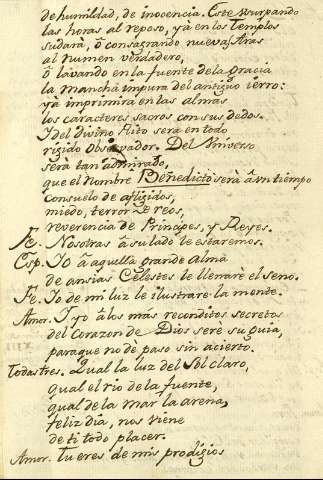 de humildad, de inocencia. Este usurpando
las horas al reposo, yà en los Templos
sudarà, ô consagrando nuevas Aras
al numen verdadero,
ô lavando en la fuente dela gracia
la mancha impura del antiguo ierro:
yà imprimirà en las almas
los caracteres sacros con sus dedos.
Ydel divino Rito serà en todo
rigido Observador. Del Universo
serà tan admirado,
que el nombre Benedicto serà â vn tiempo
consuelo de afligidos,
miedo, terror de reos,
reverencia de Principes, y Reyes.
Fe. Nosotras â su lado le estaremos.
Esp. Yo â aquella grande alma
de ansias Celestes le llenarè el seno.
Fe. Yo de mi luz le ilustrare la mente.
Amor. Y yo â los mas reconditos secretos
del Corazon de Dios serè su guia,
paraque no dè paso sin acierto.
Todas tres. Qual la luz del Sol claro,
qual el rio de la fuente,
qual de la mar la arena,
feliz dia, nos viene
de ti todo placer.
Amor. Tu eres de mis prodigios